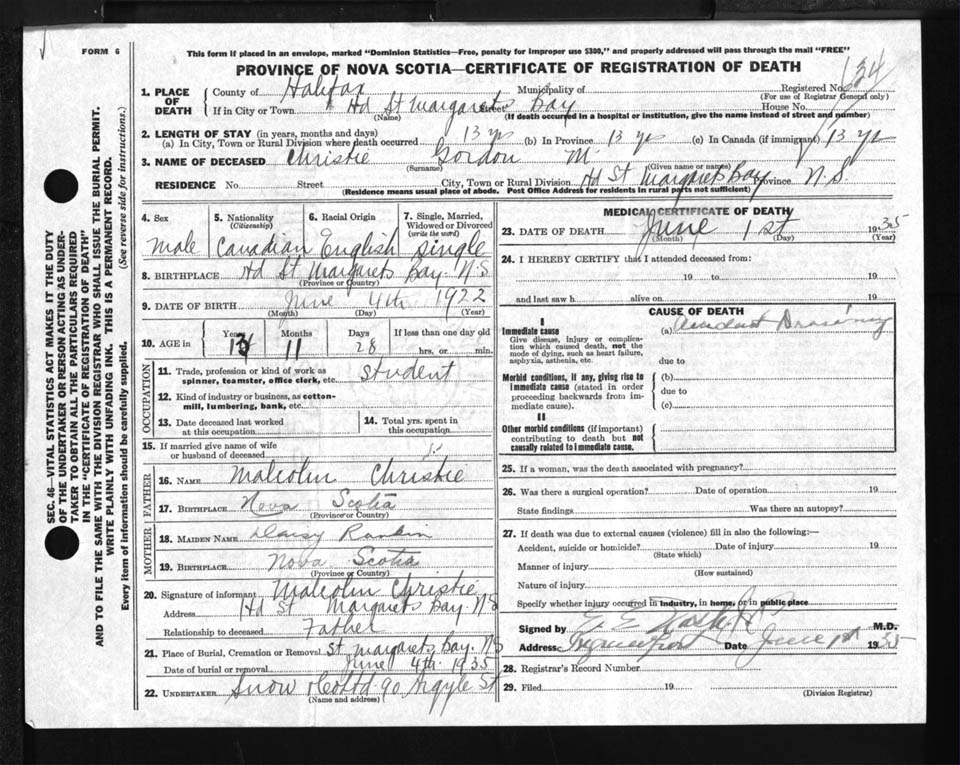 FORM 6
This form if placed in an envelope, marked "Dominion Statistics—Free, penalty for improper use $300," and properly addressed will pass through the mail "FREE"
PROVINCE OF NOVA SCOTIA—CERTIFICATE OF REGISTRATION OF DEATH
SEC. 46—VITAL STATISTICS ACT MAKES IT THE DUTY
OF THE UNDERTAKER OR PERSON ACTING AS UNDER-
TAKER TO OBTAIN ALL THE PARTICULARS REQUIRED
IN THE "CERTIFICATE OF REGISTRATION OF DEATH"
AND TO FILE THE SAME WITH THE DIVISION REGISTRAR WHO SHALL ISSUE THE BURIAL PERMIT.
WRITE PLAINLY WITH UNFADING INK. THIS IS A PERMANENT RECORD.
Every item of information should be carefully supplied. (See reverse side for instructions.)
1. PLACE OF DEATH
County of Halifax Municipality of Registered No. 134
(For use of Registrar General only)
If in City or Town Hd St Margarets Bay House No.
(Name) (If death occurred in a hospital or institution, give the name instead of street and number)
2. LENGTH OF STAY (in years, months and days)
(a) In City, Town or Rural Division where death occurred 13 yrs (b) In Province 13 yrs (c) In Canada (if immigrant) 13 yrs
3. NAME OF DECEASED Christie Gordon M.
(Surname) (Given name or names)
RESIDENCE No. Street City, Town or Rural Division Hd St Margarets Bay Province N.S.
(Residence means usual place of abode. Post Office Address for residents in rural parts not sufficient)
4. Sex male
5. Nationality (Citizenship) Canadian
6. Racial Origin English
7. Single, Married, Widowed or Divorced (write the word) single
8. BIRTHPLACE Hd St Margarets Bay. N.S
(Province or Country)
9. DATE OF BIRTH June 4th 1922
(Month) (Day) (Year)
10. AGE in Years Months Days If less than one day old
11 28 hrs. or min.
OCCUPATION
11. Trade, profession or kind of work as spinner, teamster, office clerk, etc. student
12. Kind of industry or business, as cotton-mill, lumbering, bank, etc.
13. Date deceased last worked at this occupation
14. Total yrs. spent in this occupation
15. If married give name of wife or husband of deceased
FATHER
16. NAME Malcolm Christie
17. BIRTHPLACE Nova Scotia
(Province or Country)
MOTHER
18. MAIDEN NAME Daisy Rankin
19. BIRTHPLACE Nova Scotia
(Province or Country)
20. Signature of informant Malcolm Christie
Address Hd St Margarets Bay. N.S
Relationship to deceased Father
21. Place of Burial, Cremation or Removal St Margarets Bay. N.S
Date of burial or removal June 4th 1935
22. UNDERTAKER Snow & Co Ltd 90 Argyle St
(Name and address)
MEDICAL CERTIFICATE OF DEATH
23. DATE OF DEATH June 1st 1935
(Month) (Day) (Year)
24. I HEREBY CERTIFY that I attended deceased from:
19 to 19
and last saw h alive on 19
CAUSE OF DEATH
I
Immediate cause (a) Drowning
Give disease, injury or complication which caused death, not the mode of dying, such as heart failure, asphyxia, asthenia, etc.
due to
Morbid conditions, if any, giving rise to immediate cause (stated in order proceeding backwards from immediate cause).
(b)
due to
(c)
II
Other morbid conditions (if important) contributing to death but not causally related to immediate cause.
25. If a woman, was the death associated with pregnancy?
26. Was there a surgical operation? Date of operation 19
State findings Was there an autopsy?
27. If death was due to external causes (violence) fill in also the following:—
Accident, suicide or homicide? Date of injury 19
(State which)
Manner of injury
(How sustained)
Nature of injury
Specify whether injury occurred in industry, in home, or in public place
Signed by M.D.
Address Date June 1st 1935
28. Registrar's Record Number
29. Filed 19
(Division Registrar)